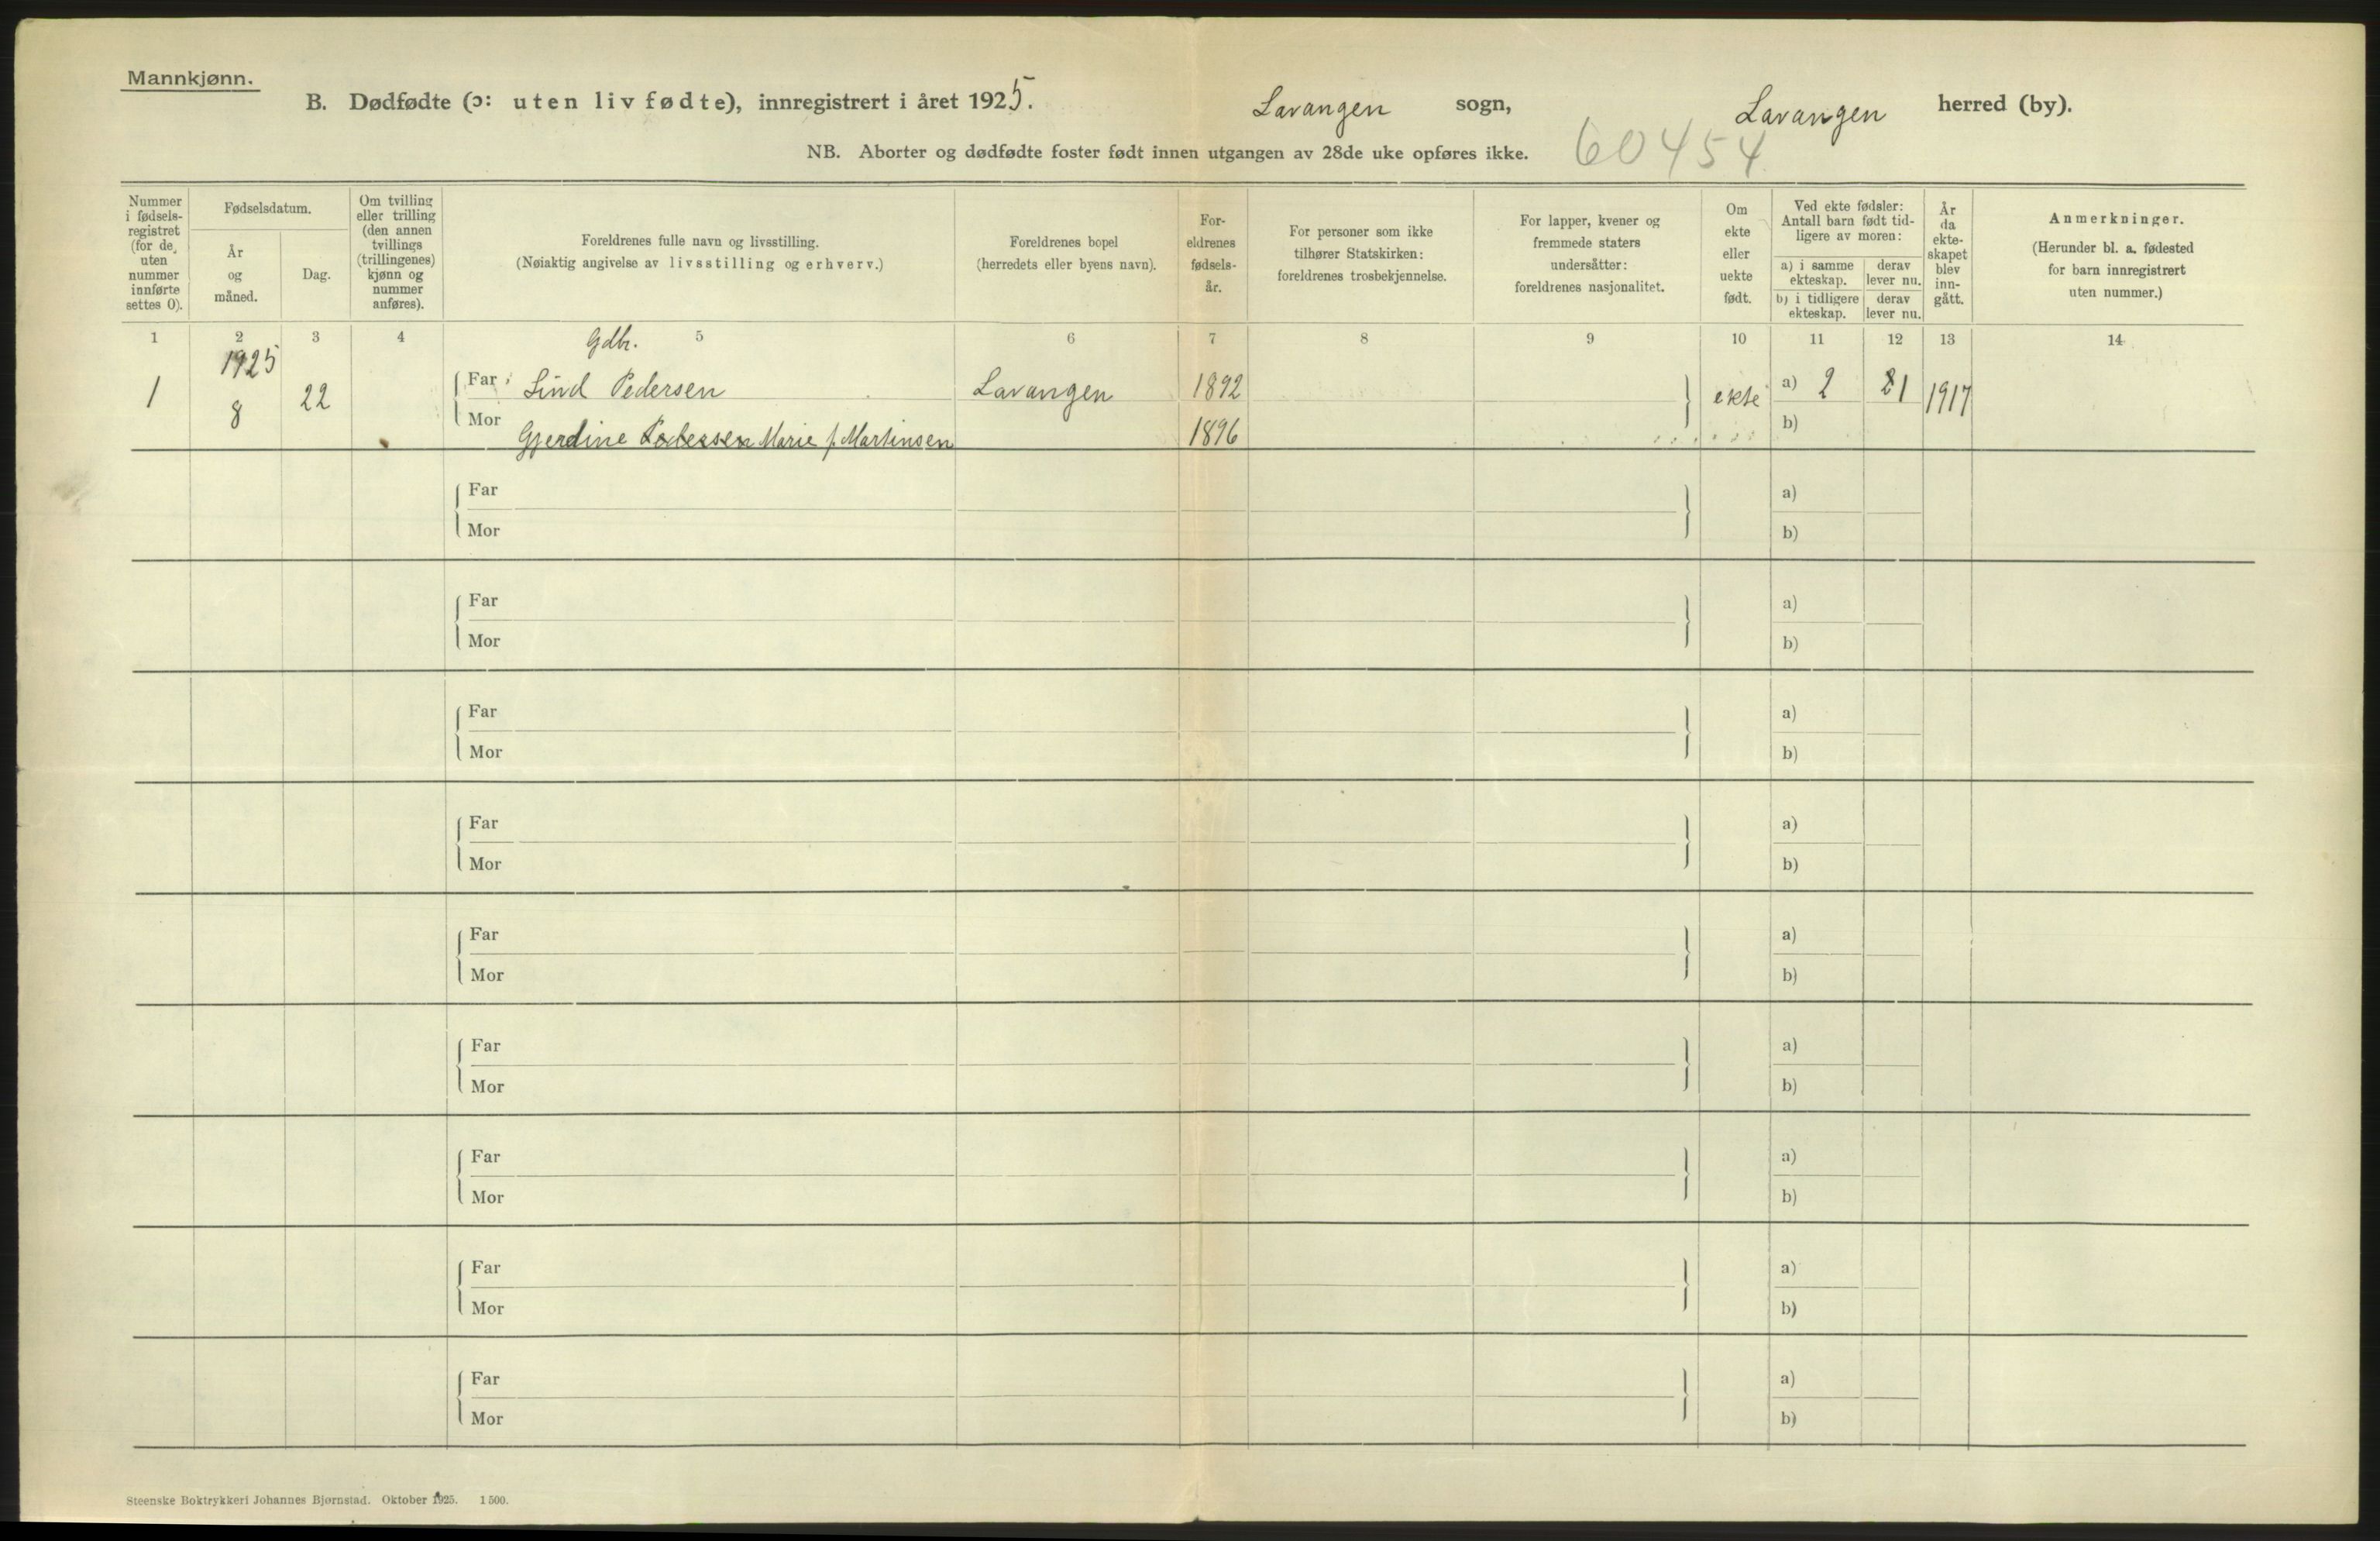 Mannkjønn.
B. Dødfødte (ɔ: uten liv fødte), innregistrert i året 1925. Lavangen sogn, Lavangen herred (by).
NB. Aborter og dødfødte foster født innen utgangen av 28de uke opføres ikke. 60454
Nummer i fødsels- registret (for de uten nummer innførte settes 0).
Fødselsdatum.
År og måned.
Dag.
Om tvilling eller trilling (den annen tvillings (trillingenes) kjønn og nummer anføres).
Foreldrenes fulle navn og livsstilling.
(Nøiaktig angivelse av livsstilling og erhverv.)
Foreldrenes bopel
(herredets eller byens navn).
For- eldrenes fødsels- år.
For personer som ikke tilhører Statskirken: foreldrenes trosbekjennelse.
For lapper, kvener og fremmede staters undersåtter: foreldrenes nasjonalitet.
Om ekte eller uekte født.
Ved ekte fødsler: Antall barn født tid- ligere av moren:
a) i samme ekteskap.
derav lever nu.
b) i tidligere ekteskap.
derav lever nu.
År da ekte- skapet blev inn- gått.
Anmerkninger.
(Herunder bl. a. fødested for barn innregistrert uten nummer.)
1 2 3 4 5 6 7 8 9 10 11 12 13 14
1925 Gdbr.
1 8 22 Far Lind Pedersen Lavangen 1892 ekte a) 2 1 1917
Mor Gjerdine Pedersen Marie f. Martinsen 1896 b)
Far a)
Mor b)
Far a)
Mor b)
Far a)
Mor b)
Far a)
Mor b)
Far a)
Mor b)
Far a)
Mor b)
Far a)
Mor b)
Far a)
Mor b)
Far a)
Mor b)
Steenske Boktrykkeri Johannes Bjørnstad. Oktober 1925. 1500.